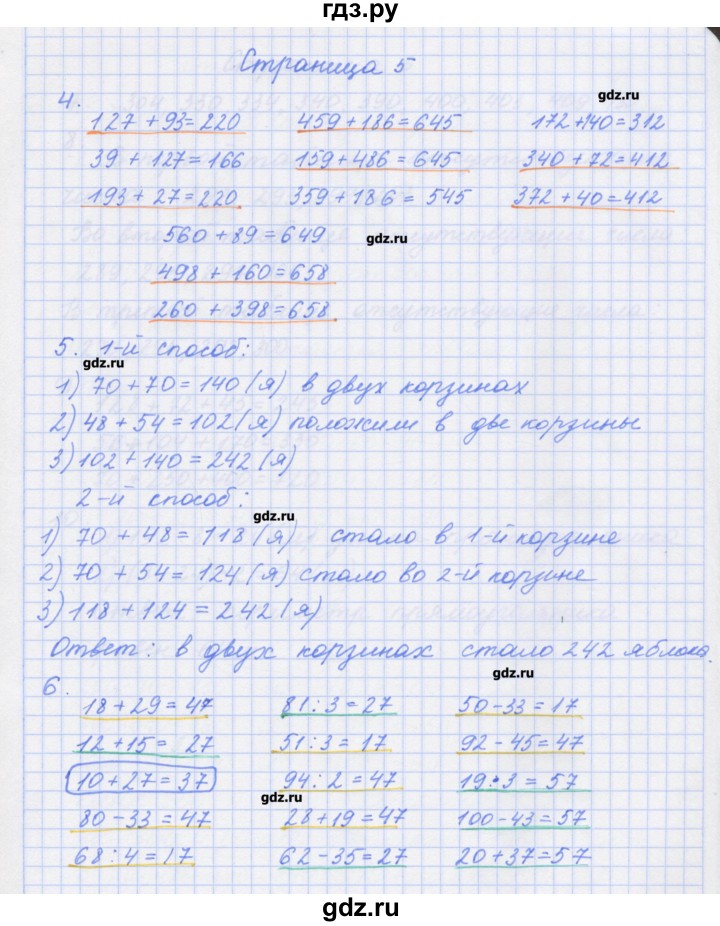 гдз.ру
Страница 5
gdz.ru
4.
127 + 93 = 220 459 + 186 = 645 172 + 140 = 312
39 + 127 = 166 159 + 486 = 645 340 + 72 = 412
193 + 27 = 220 359 + 186 = 545 372 + 40 = 412
560 + 89 = 649
gdz.ru
498 + 160 = 658
260 + 398 = 658
5. 1-й способ:
gdz.ru
1) 70 + 70 = 140 (я) в двух корзинах
2) 48 + 54 = 102 (я) положили в две корзины
3) 102 + 140 = 242 (я)
2-й способ:
gdz.ru
1) 70 + 48 = 118 (я) стало в 1-й корзине
2) 70 + 54 = 124 (я) стало во 2-й корзине
3) 118 + 124 = 242 (я)
Ответ: в двух корзинах стало 242 яблока.
gdz.ru
6.
18 + 29 = 47 81 : 3 = 27 50 - 33 = 17
12 + 15 = 27 51 : 3 = 17 92 - 45 = 47
10 + 27 = 37 94 : 2 = 47 19 · 3 = 57
gdz.ru
80 - 33 = 47 28 + 19 = 47 100 - 43 = 57
68 : 4 = 17 62 - 35 = 27 20 + 37 = 57
gdz.ru